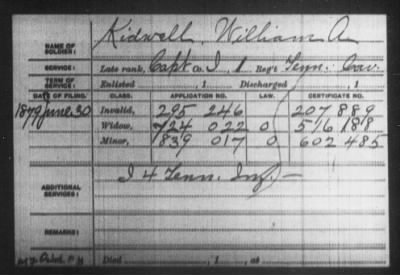 NAME OF SOLDIER: Kidwell, William A.
SERVICE: Late rank, Capt Co. I, 1 Reg't Tenn. Cav.
TERM OF SERVICE: Enlisted , 1 Discharged , 1
DATE OF FILING. CLASS. APPLICATION NO. LAW. CERTIFICATE NO.
1879 June 30 Invalid, 295 246 207 889
Widow, 724 022 0 516 188
Minor, 839 017 0 602 485
ADDITIONAL SERVICES: I 4 Tenn. Inf.
REMARKS:
Died , 1 , at